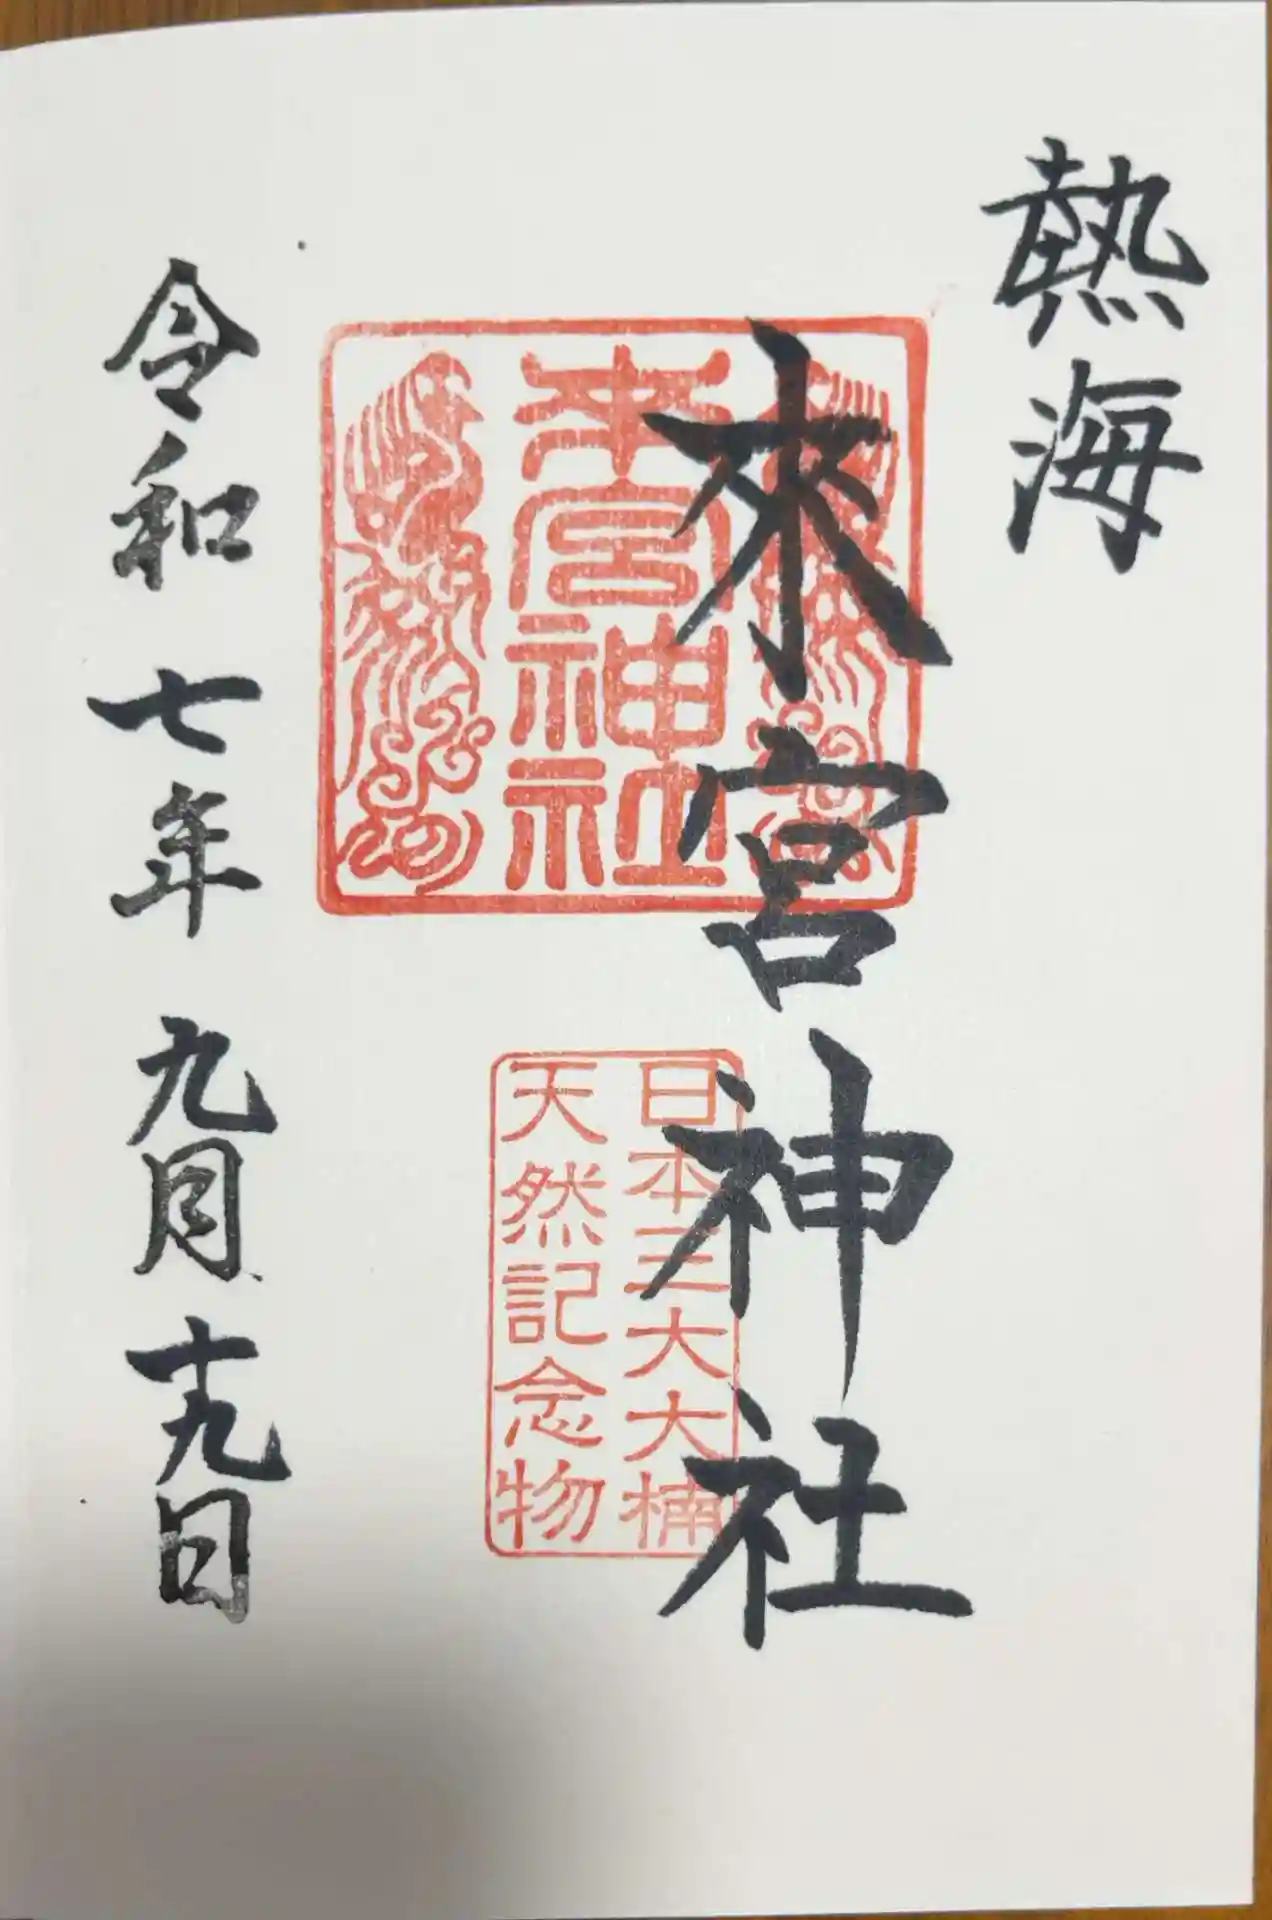 熱海
來宮神社
来宮神社
日本三大大楠
天然記念物
令和七年九月十九日